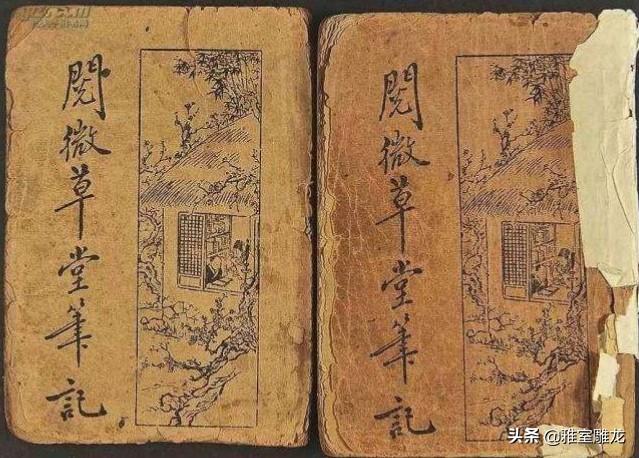 閱微草堂筆記
閱微草堂筆記
头条 @雅室雕龙